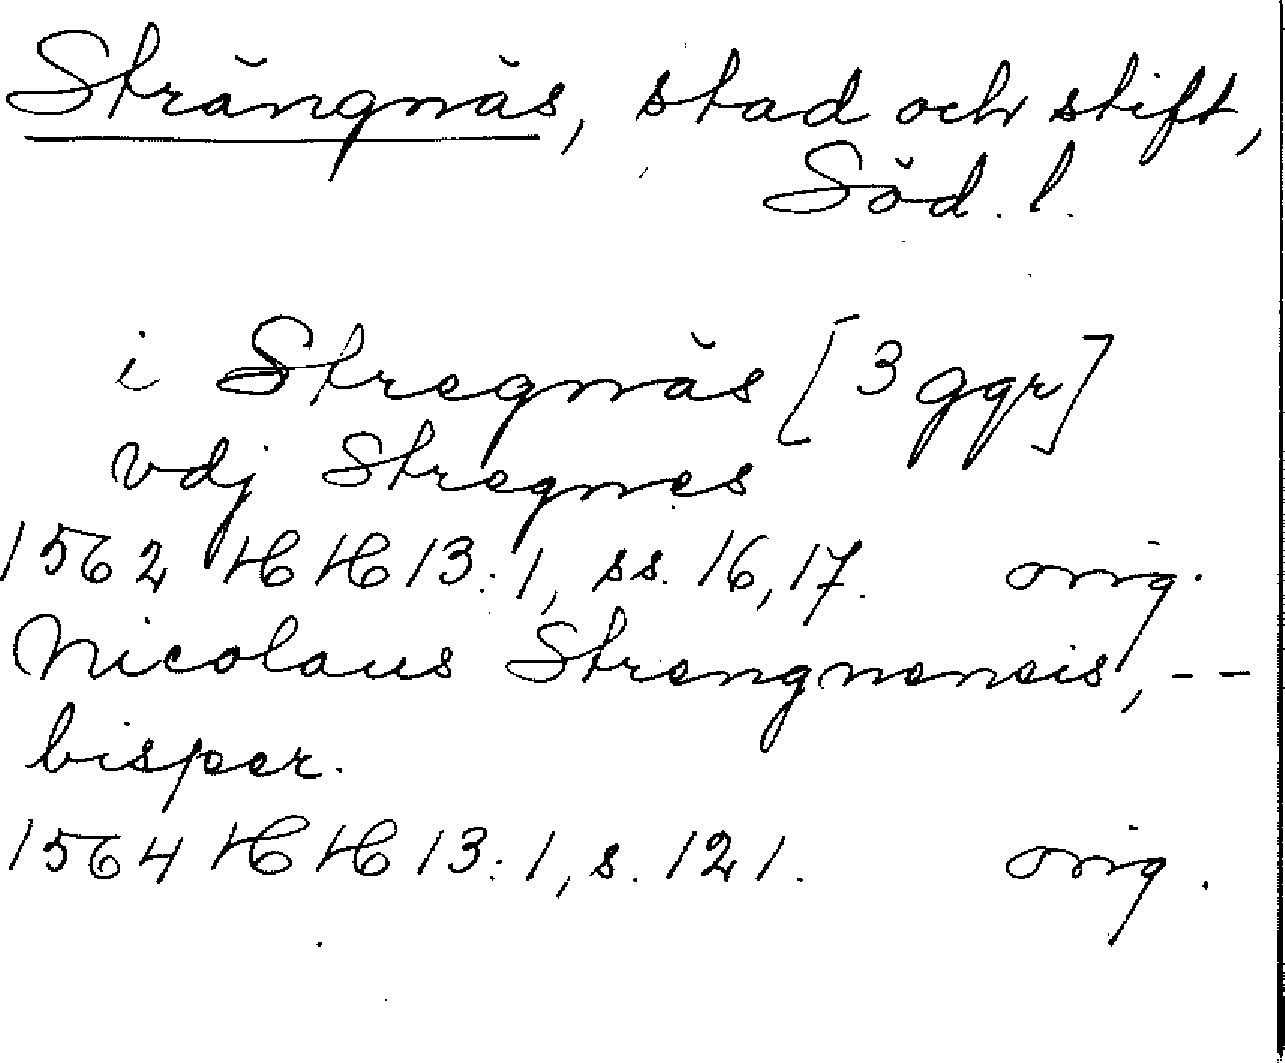 Strängnäs, stad och stift,
Söd. l.
i Stregnäs [3 ggr]
vdj Stregnes
1562 HH 13:1, ss. 16, 17. orig.
Nicolaus Strengnensis, --
bisper.
1564 HH 13:1, s. 121. orig.